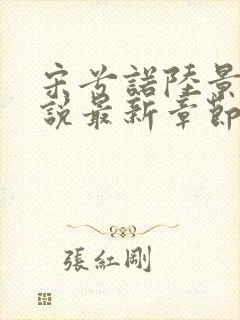 宋兮諾陸景
說最新章節
張紅剛